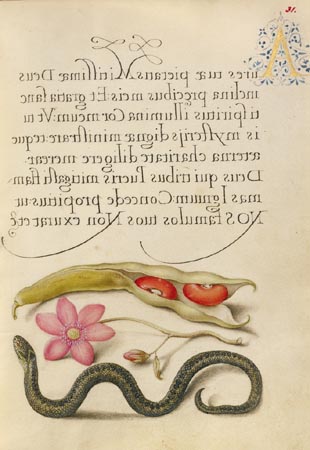 31.
Aures tuæ pietatis Mitissimæ Deus
inclina precibus meis Et gratia sanc
ti spiritus illumina Cor meum: Vt tu
is mysterijs dignæ ministrare teque
æterna charitate diligere merear.
Deus qui tribus Pueris mitigasti flam
mas Ignium Concede propitius ut
NOS famulos tuos Non exurat etc̃